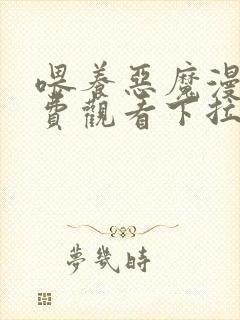 喂養惡魔漫
費觀看下拉
夢幾時